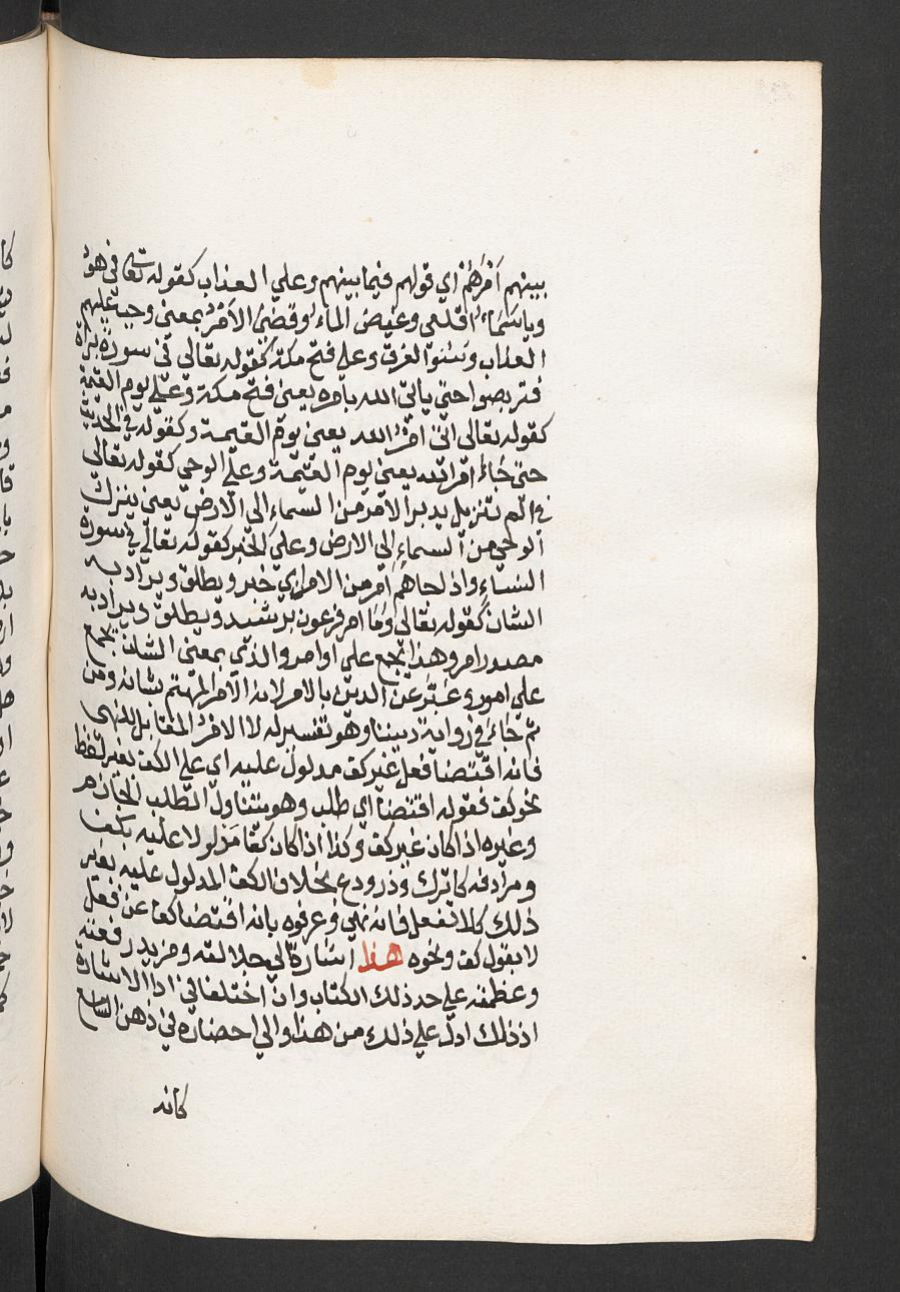 بينهم اَمْرَهُمْ اي قولهم فيما بينهم وعلي العذاب كقوله تعالى في هود
وياسَمَاءُ اقلعي وغيض الماء وقضي الاَمْرُ بمعنى وجب عليهم
العذاب وبينوا الغرق وعلى فتح مكة كقوله تعالى في سورة براة
فتربصوا حتى ياتي الله بامره يعني فتح مكة وعلى يوم القيمة
كقوله تعالى اتى امْرُ الله يعني يوم القيمة وكقوله في الحديد
حتى جَاءَ امر الله يعني يوم القيمة وعلى الوحي كقوله تعالى
في الم تنزيل يدبر الامر من السماء الى الارض يعني ينزل
الوحي من السماء الى الارض وعلى الخبر كقوله تعالى في سورة
النساء واذا جاهم امر من الامر اي خبر ويطلق ويراد به
الشان كقوله تعالى وما امر فرعون برشيد ويطلق ويراد به
مصدر امر وهذا يجمع على اوامر والذي بمعنى الشان يجمع
على امور وعَبَّرَ عن الدين بالامر لانه الامر المهتم بشانه ومن
ثم جَاءَ في رواية ديننا وهو تفسير له لا الامرُ المقابل للنهى
فانه اقتضا فعل غير كف مدلول عليه اي على الكف بغير لفظ
نحو كف فقوله اقتضا اي طلب وهو يتناول الطلب الجازم
وغيره اذا كان غير كف وكذا اذا كان كفا مَدلولا عليه بكف
ومرادفه كاترك وذر ودع بخلاف الكف المدلول عليه بغير
ذلك كلا تفعل فانه نهي وعرفوه بانه اقتضا كف عن فعل
لا بقول كف ونحوه هذا اشارة الى جلالته ومزيد رفعته
وعظمته على حد ذلك الكتاب وان اختلفا في اداة الاشارة
اذ ذلك ادل على ذلك من هذا والي احضاره في ذهن السامع
كانه